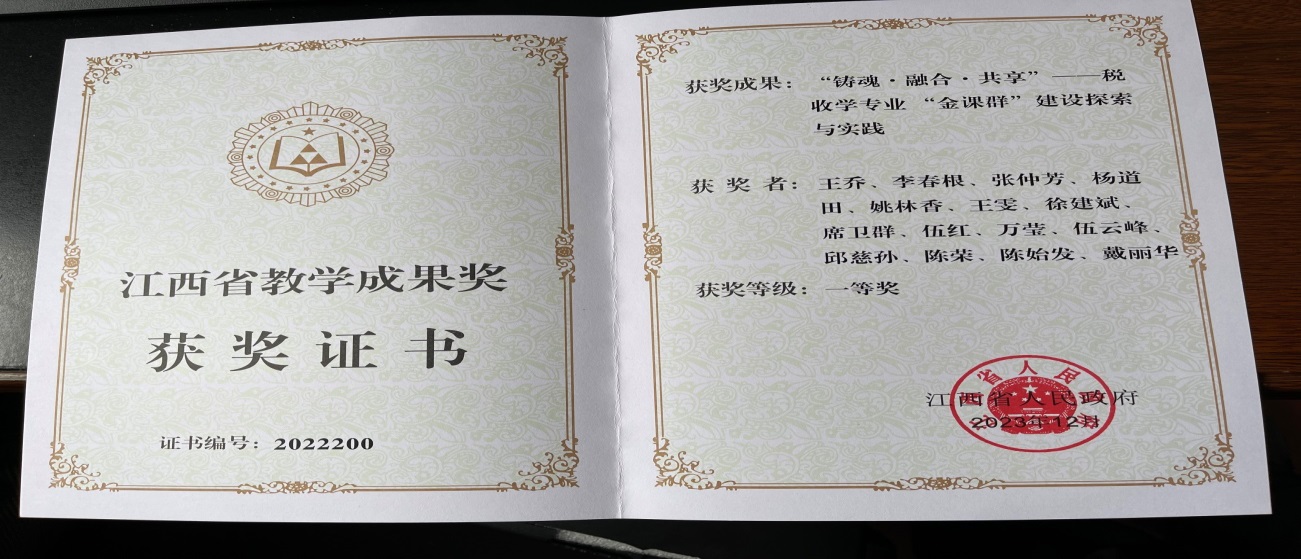 江西省教学成果奖
获奖证书
证书编号：2022200
获奖成果：“铸魂·融合·共享”——税
收学专业“金课群”建设探索
与实践
获奖者：王乔、李春根、张仲芳、杨道
田、姚林香、王雯、徐建斌、
席卫群、伍红、万莹、伍云峰、
邱慈孙、陈荣、陈始发、戴丽华
获奖等级：一等奖
江西省人民政府
2023年12月
江西省人民政府